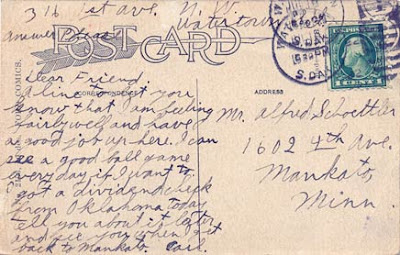 316 1st Ave. N
Watertown
Answer Please
POST CARD
CORRESPONDENCE
ADDRESS
COMICS.
S. DAK
1 CENT 1
Dear Friend
A line to let you
know that I am feeling
fairly well and have
a good job up here. I can
see a good ball game
every day if I want to.
got a dividend check
from Oklahoma today
tell you about it later
and see you when I get
back to Mankato. Carl.
Mr. Alfred Schoettler
1602 4th Ave.
Mankato,
Minn.